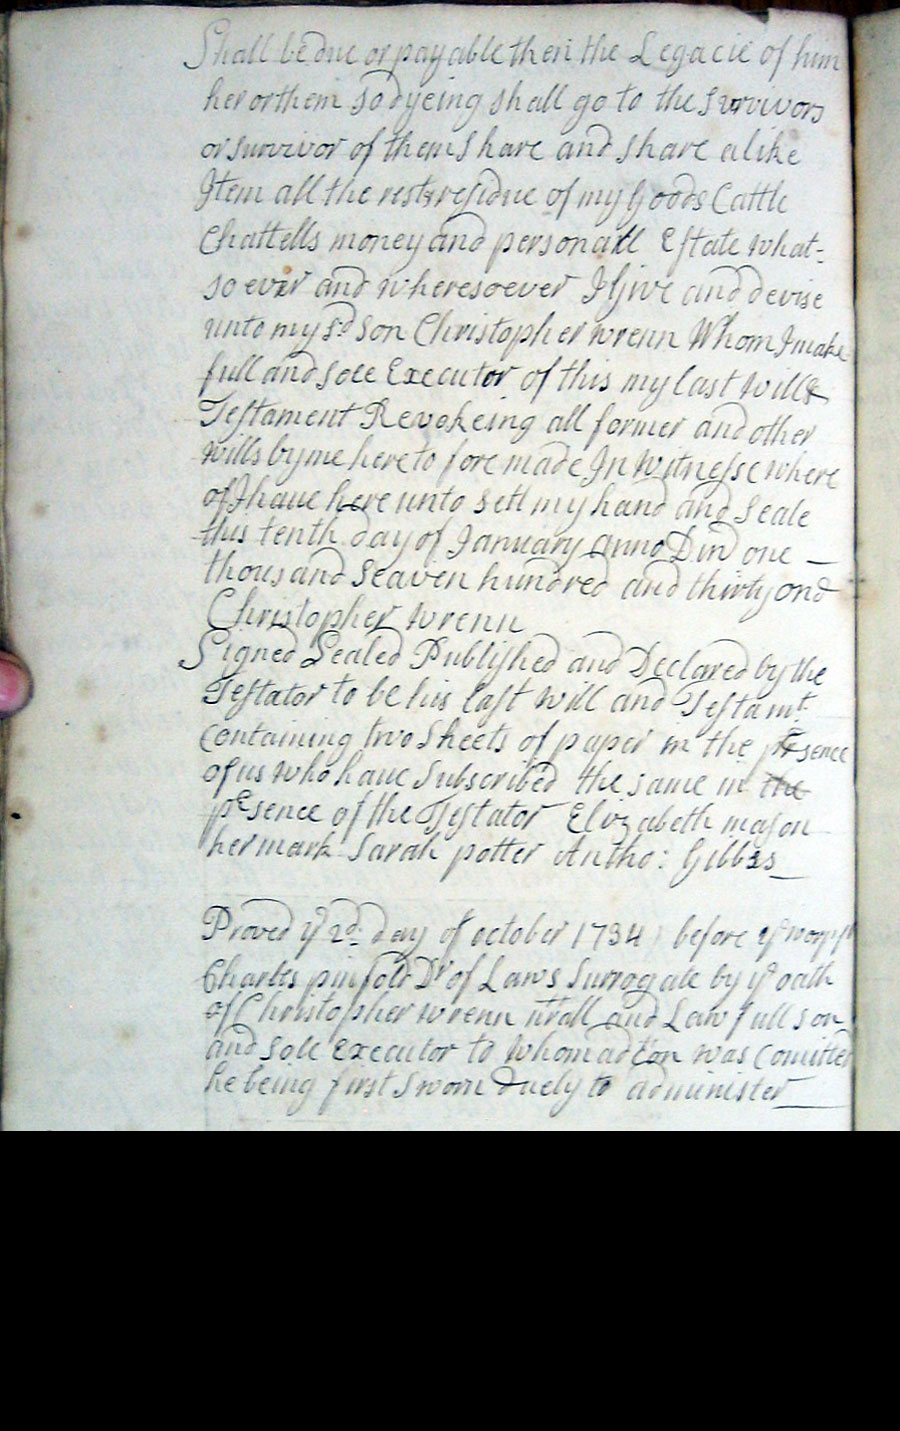 Shall be due or payable then the Legacie of him
her or them so dyeing shall go to the survivors
or survivor of them Share and share alike
Item all the rest & residue of my Goods Cattle
Chattells money and personall Estate what-
so ever and wheresoever I Give and devise
unto my sd son Christopher wrenn Whom I make
full and sole Executor of this my last will &
Testament Revokeing all former and other
wills by me here to fore made In Witnesse where
of I have here unto sett my hand and Seale
this tenth day of January Anno Dm̄ one —
thousand Seaven hundred and thirty one
Christopher wrenn
Signed Sealed Published and Declared by the
Testator to be his last will and Testamt.
Containing two Sheets of paper in the psence
of us who have Subscribed the same in the
psence of the Testator Elizabeth mason
her mark Sarah potter Antho: Gibbs
Proved ye 2d: Day of october 1734 before ye worppll
Charles pinfold Dr of Laws Surrogate by ye oath
of Christopher wrenn nrall and Lawfull son
and sole executor to whom adcon was comitted
he being first Sworn Duely to administer